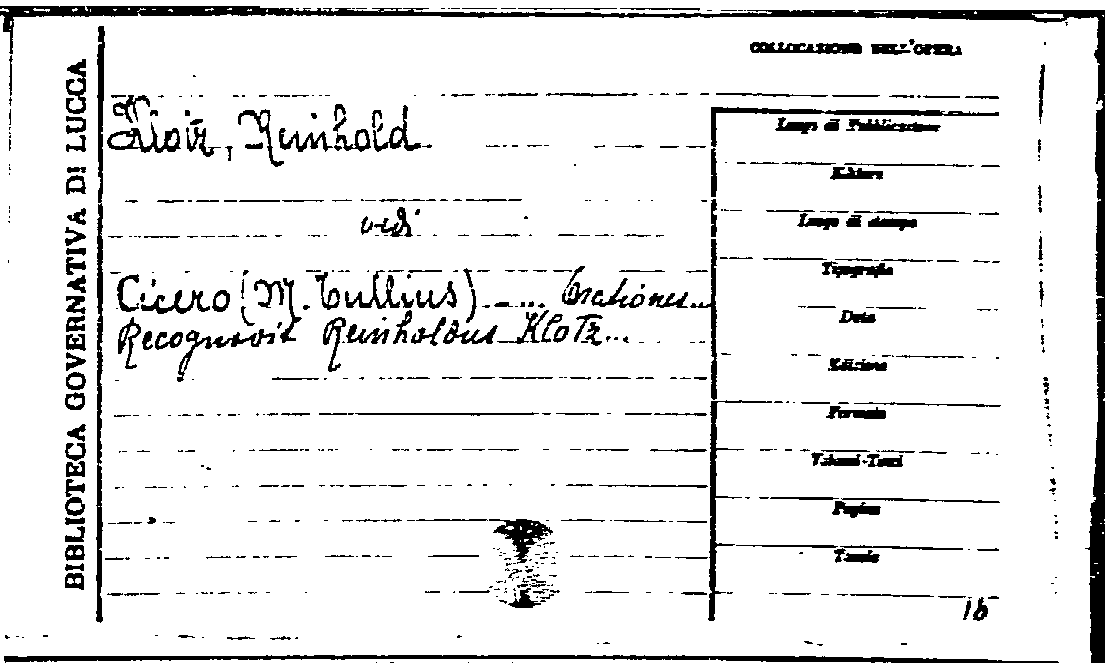 BIBLIOTECA GOVERNATIVA DI LUCCA
COLLOCAZIONE DELL'OPERA
Klotz, Reinhold
vedi
Cicero (M. Tullius) _ ... Orationes...
Recognovit Reinholdus Klotz...
Luogo di Pubblicazione
Editore
Luogo di stampa
Tipografia
Data
Edizione
Formato
Volumi-Tomi
Pagine
Tavole
16